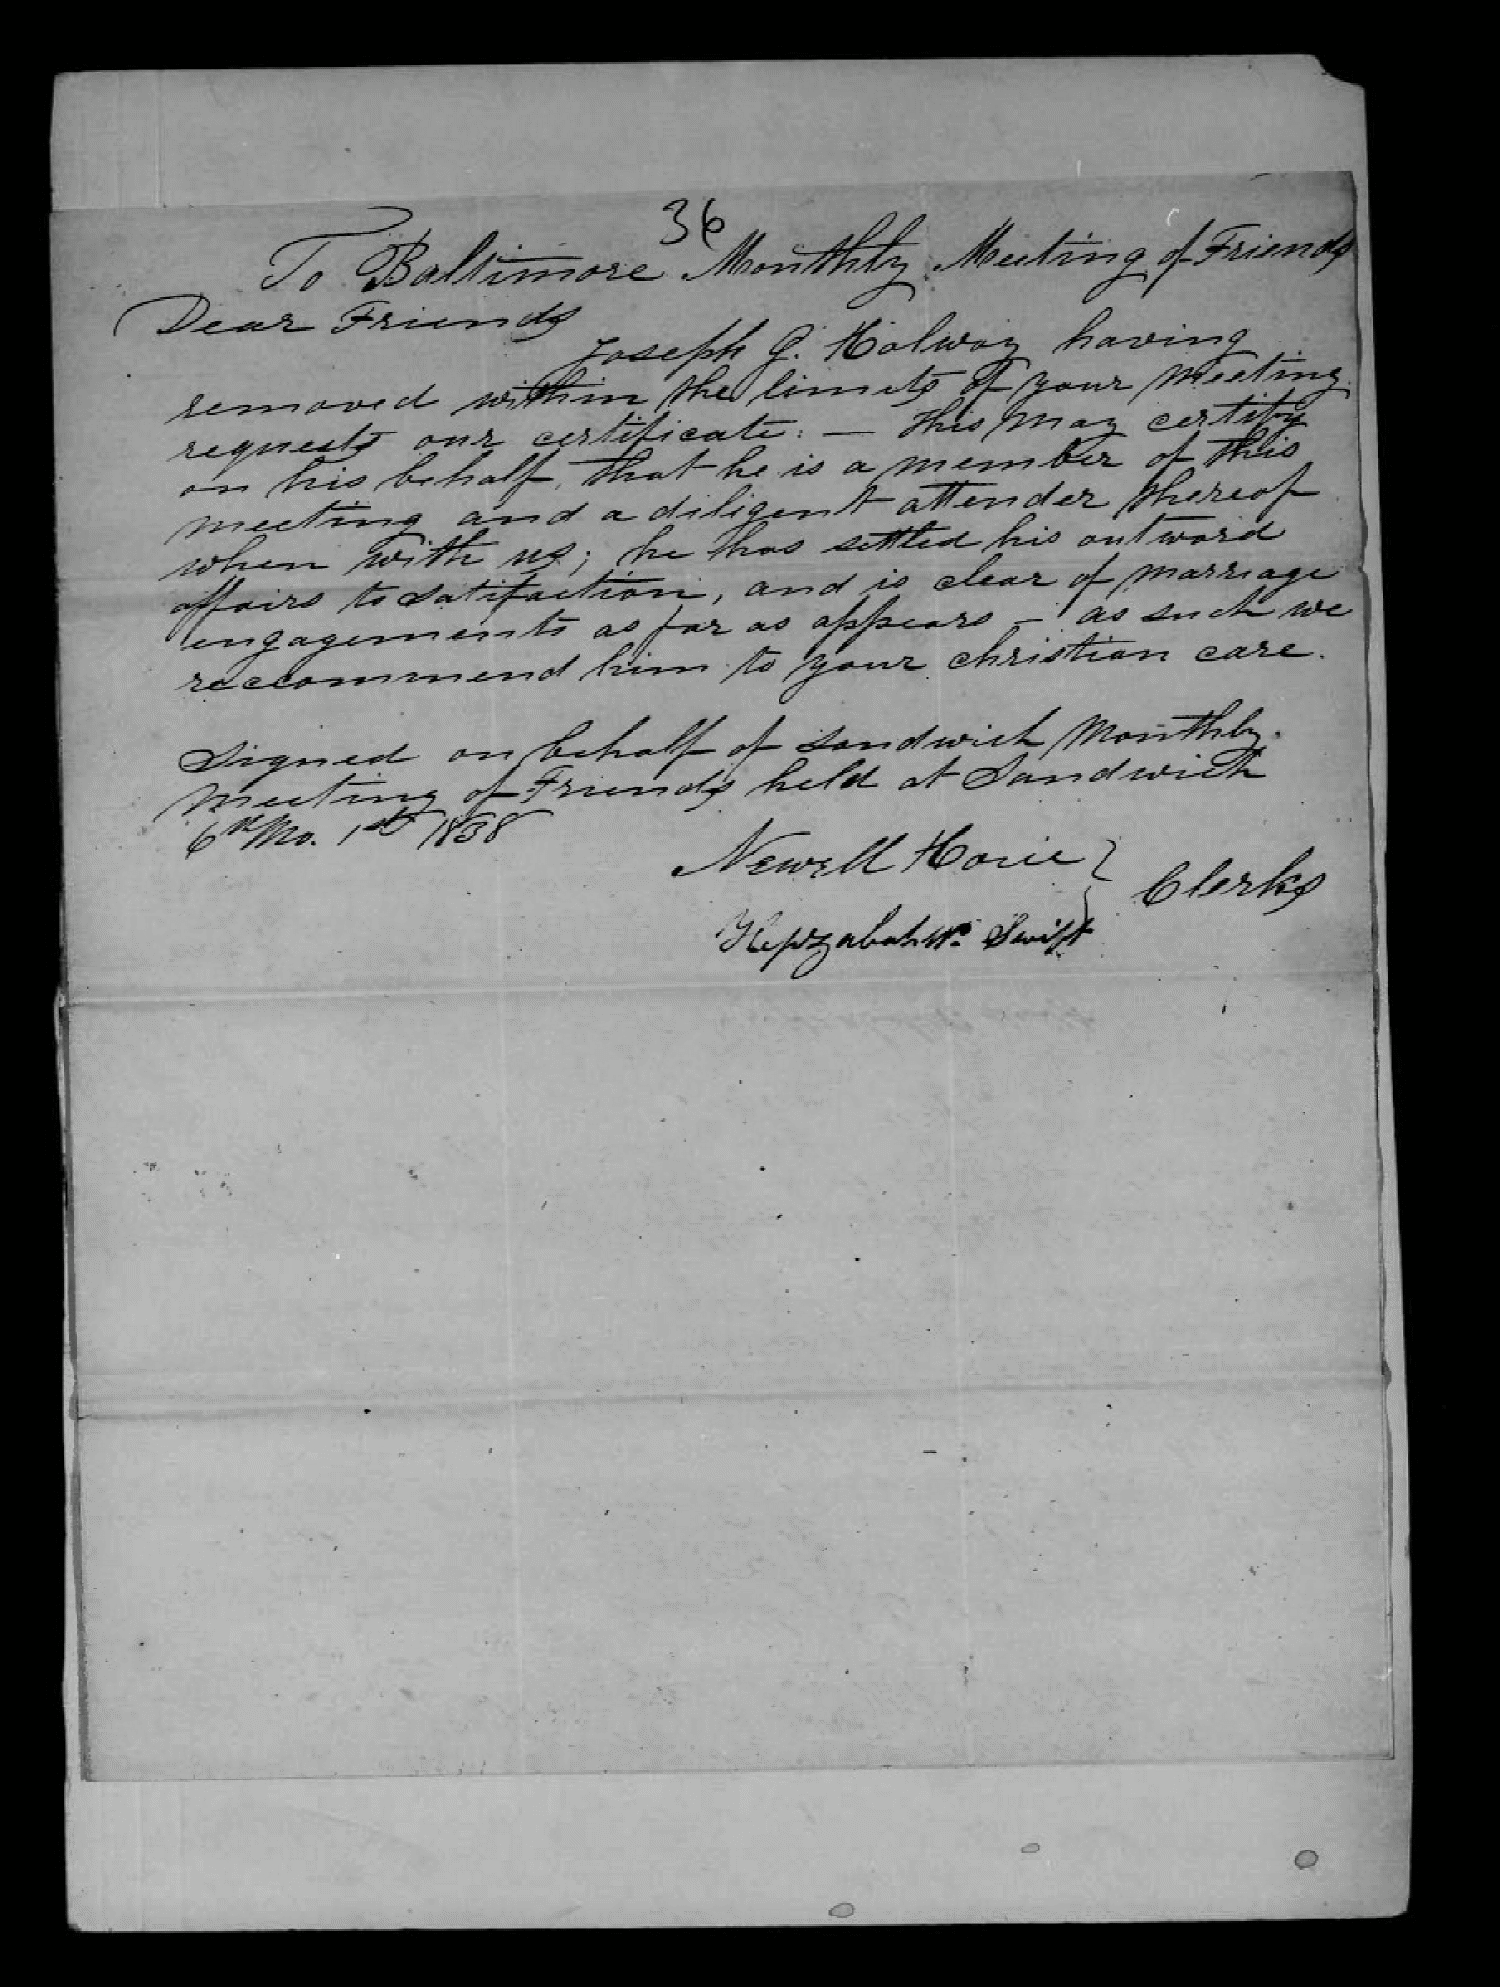 36
To Baltimore Monthly Meeting of Friends
Dear Friends
Joseph G. Holway having
removed within the limits of your meeting
requests our certificate: — this may certify
on his behalf, that he is a member of this
meeting and a diligent attender thereof
when with us; he has settled his outward
affairs to satisfaction, and is clear of marriage
engagements as far as appears — as such we
reccommend him to your christian care.
Signed on behalf of Sandwich Monthly
Meeting of Friends held at Sandwich
6th Mo. 1st 1838
Newell Hoxie } Clerks
Hepzabah W. Swift